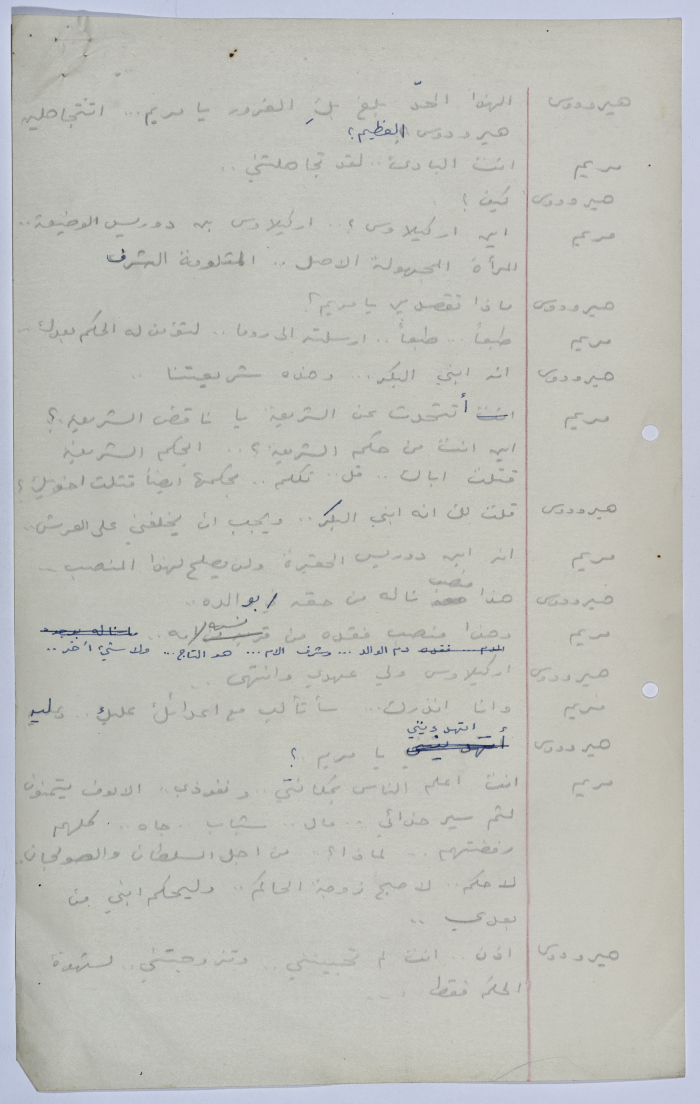 هيرودوس الهذا الحدّ بلغ بكِ الغرور يا مريم... اتتجاهلين
هيرودوس العظيم؟
مريم انت البادئ.. لقد تجاهلتني..
هيرودوس كيف؟
مريم اين اركيلاوس؟.. اركيلاوس بن دوريس الوضيعة..
المرأة المجهولة الاصل.. المثلومة الشرف
هيرودوس ماذا تقصدين يا مريم؟
مريم طبعاً... طبعاً.. ارسلته الى روما.. لتؤمن له الحكم بعدك..
هيرودوس انه ابني البكر... وهذه شريعتنا..
مريم انت أتتحدث عن الشريعة يا ناقض الشريعة؟
اين انت من حكم الشريعة؟.. ابحكم الشريعة
قتلت اباك.. قل.. تكلم.. بحكمها ايضاً قتلت اخويك؟
هيرودوس قلت لك انه ابني البكر.. ويجب ان يخلفني على العرش..
مريم انه ابن دوريس الحقيرة ولن يصلح لهذا المنصب...
منصب
هيرودوس هذا ناله من حقه / بوالده..
مريم وهذا منصب فقده من نسبه / لامه..
دم الوالد... وشرف الام... هو التاج... ولا شيء آخر..
هيرودوس اركيلاوس ولي عهدي وانتهى..
مريم وانا انذرك... سأتألب مع اعدائك عليك.. وعليه
اتهددينني
هيرودوس أتهددينني يا مريم؟
مريم انت اعلم الناس بمكانتي.. ونفوذي.. الالوف يتمنون
لثم سير حذائي.. مال.. شباب.. جاه.. كلهم
رفضتهم... لماذا؟.. من اجل السلطان والصولجان..
لاحكم.. لاصبح زوجة الحاكم.. وليحكم ابني من
بعدي..
هيرودوس اذن.. انت لم تحبينني.. وتزوجتني.. لشهوة
الحكم فقط...